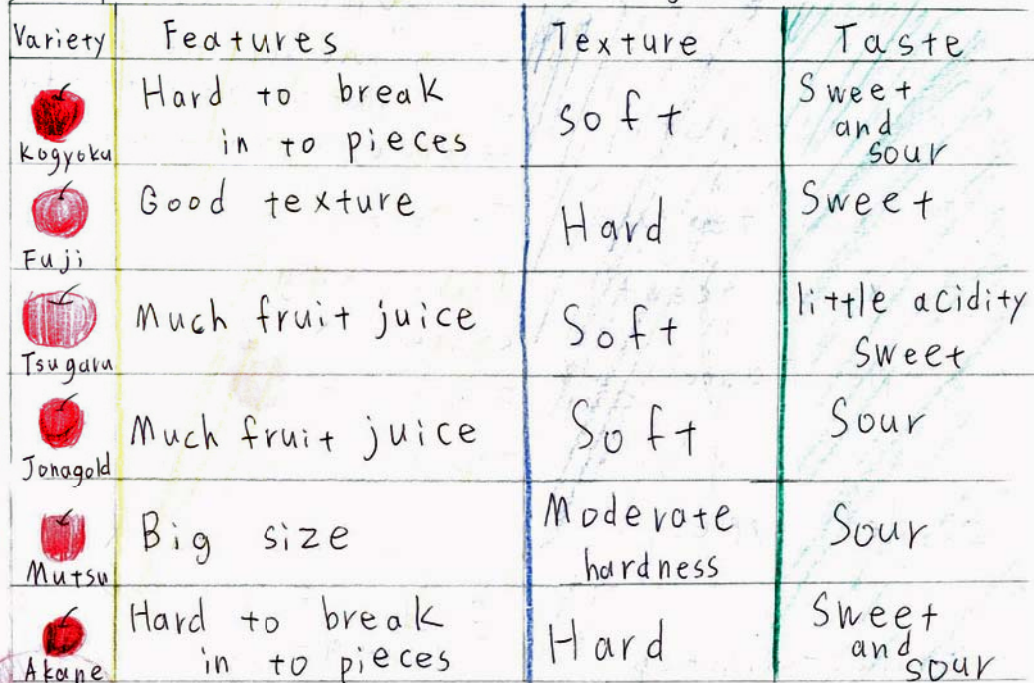 Variety Features Texture Taste
Hard to break
in to pieces
soft
Sweet
and
sour
Kogyoku
Good texture
Hard
Sweet
Fuji
Much fruit juice
Soft
little acidity
Sweet
Tsugaru
Much fruit juice
Soft
Sour
Jonagold
Big size
Moderate
hardness
Sour
Mutsu
Hard to break
in to pieces
Hard
Sweet
and
sour
Akane